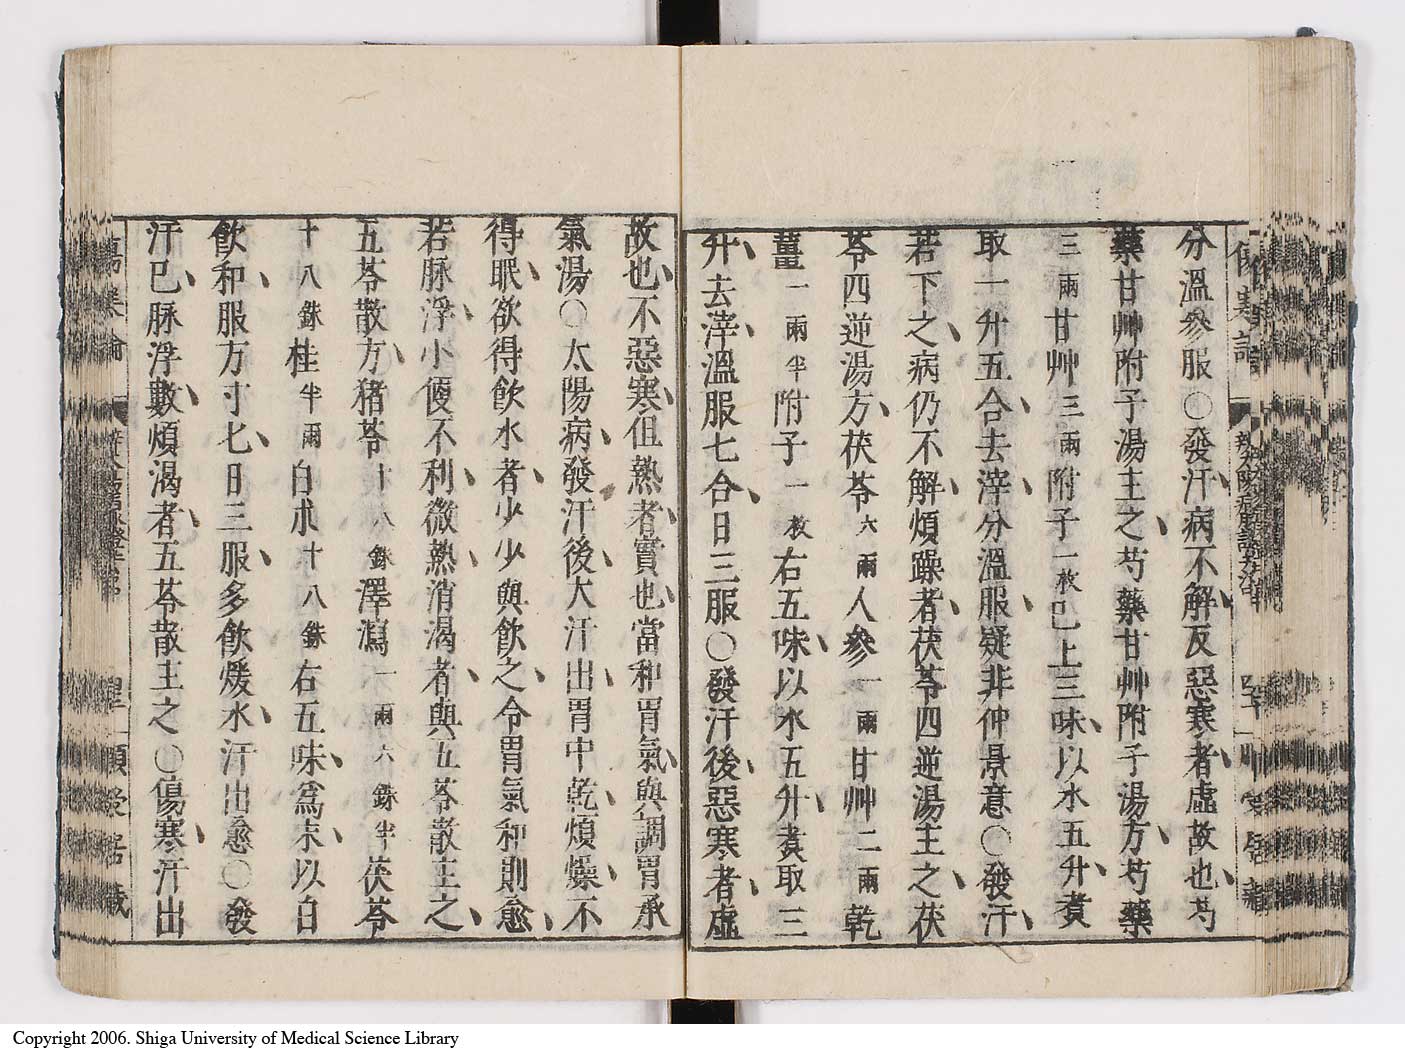 分溫參服○發汗病不解反惡寒者虛故也芍
藥甘艸附子湯主之芍藥甘艸附子湯方芍藥
三兩甘艸三兩附子一枚已上三味以水五升煑
取一升五合去滓分溫服疑非仲景意○發汗
若下之病仍不解煩躁者茯苓四逆湯主之茯
苓四逆湯方茯苓六兩人參一兩甘艸二兩乾
薑一兩半附子一枚右五味以水五升煑取三
升去滓溫服七合日三服○發汗後惡寒者虛
故也不惡寒但熱者實也當和胃氣與調胃承
氣湯○太陽病發汗後大汗出胃中乾煩燥不
得眠欲得飲水者少少與飲之令胃氣和則愈
若脉浮小便不利微熱消渴者與五苓散主之
五苓散方猪苓十八銖澤瀉一兩六銖半茯苓
十八銖桂半兩白朮十八銖右五味爲末以白
飲和服方寸匕日三服多飲煖水汗出愈○發
汗已脉浮數煩渴者五苓散主之○傷寒汗出
Copyright 2006. Shiga University of Medical Science Library